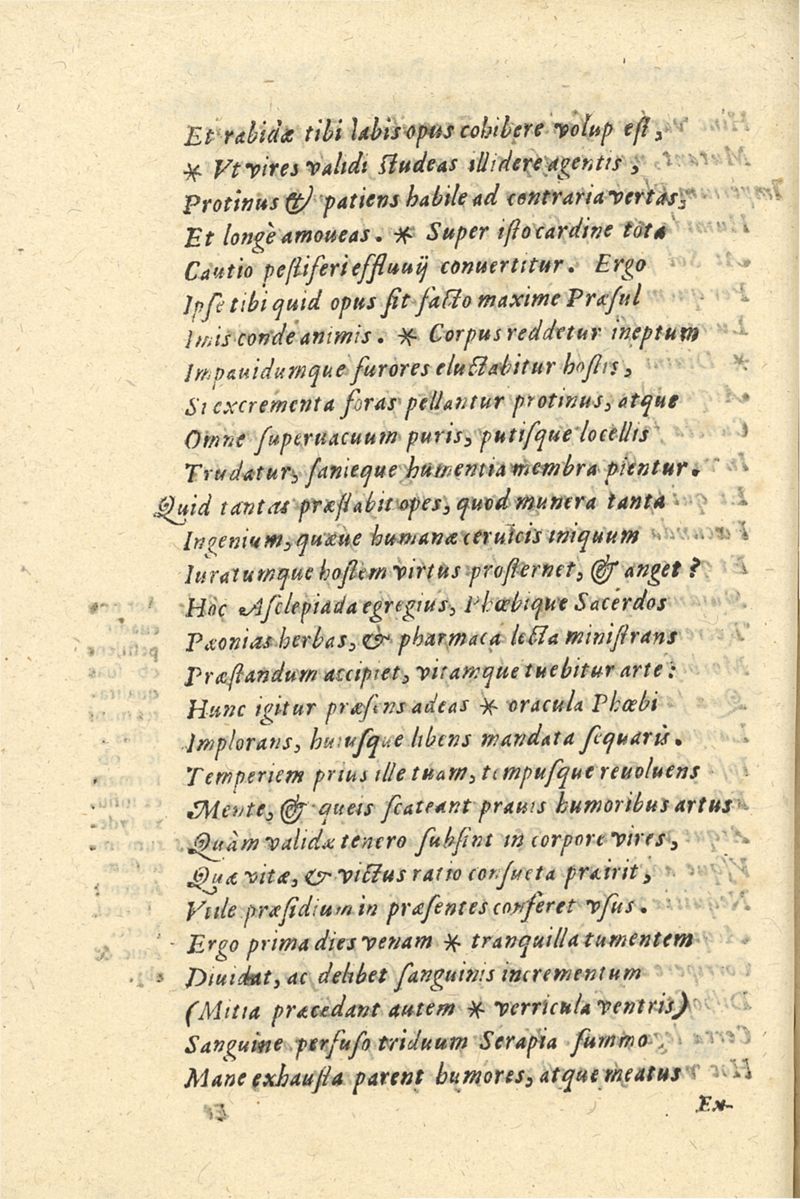 Et rabidæ tibi labis opus cohibere volup est,
* Vt vires validi studeas illidere agentis,
Protinus & patiens habile ad contraria vertas,
Et longè amoueas. * Super isto cardine tota
Cautio pestiferi effluuij conuertitur. Ergo
Ipse tibi quid opus sit facto maxime Præsul
Imis conde animis. * Corpus reddetur ineptum
Impauidumque furores eluctabitur hostis,
Si excrementa foras pellantur protinus, atque
Omne superuacuum puris, putisque locellis
Trudatur, sanieque humentia membra pientur.
Quid tantas præstabit opes, quod munera tanta
Ingenium, quæue humanæ ceruicis iniquum
Iuratumque hostem virtus prosternet, & anget?
Hoc Asclepiada egregius, Phœbique Sacerdos
Pæonias herbas, & pharmaca lecta ministrans
Præstandum accipiet, vitamque tuebitur arte:
Hunc igitur præsens adeas * oracula Phœbi
Implorans, huiusque libens mandata sequaris.
Temperiem prius ille tuam, tempusque reuoluens
Mente, & queis scateant prauis humoribus artus
Quàm validæ tenero subsint in corpore vires,
Quæ vitæ, & victus ratio consueta præirit,
Vtile præsidium in præsentes conferet vsus.
Ergo prima dies venam * tranquilla tumentem
Diuidat, ac delibet sanguinis incrementum
(Mitia præcedant autem * verricula ventris)
Sanguine perfuso triduum Serapia summo
Mane exhausta parent humores, atque meatus
Ex-